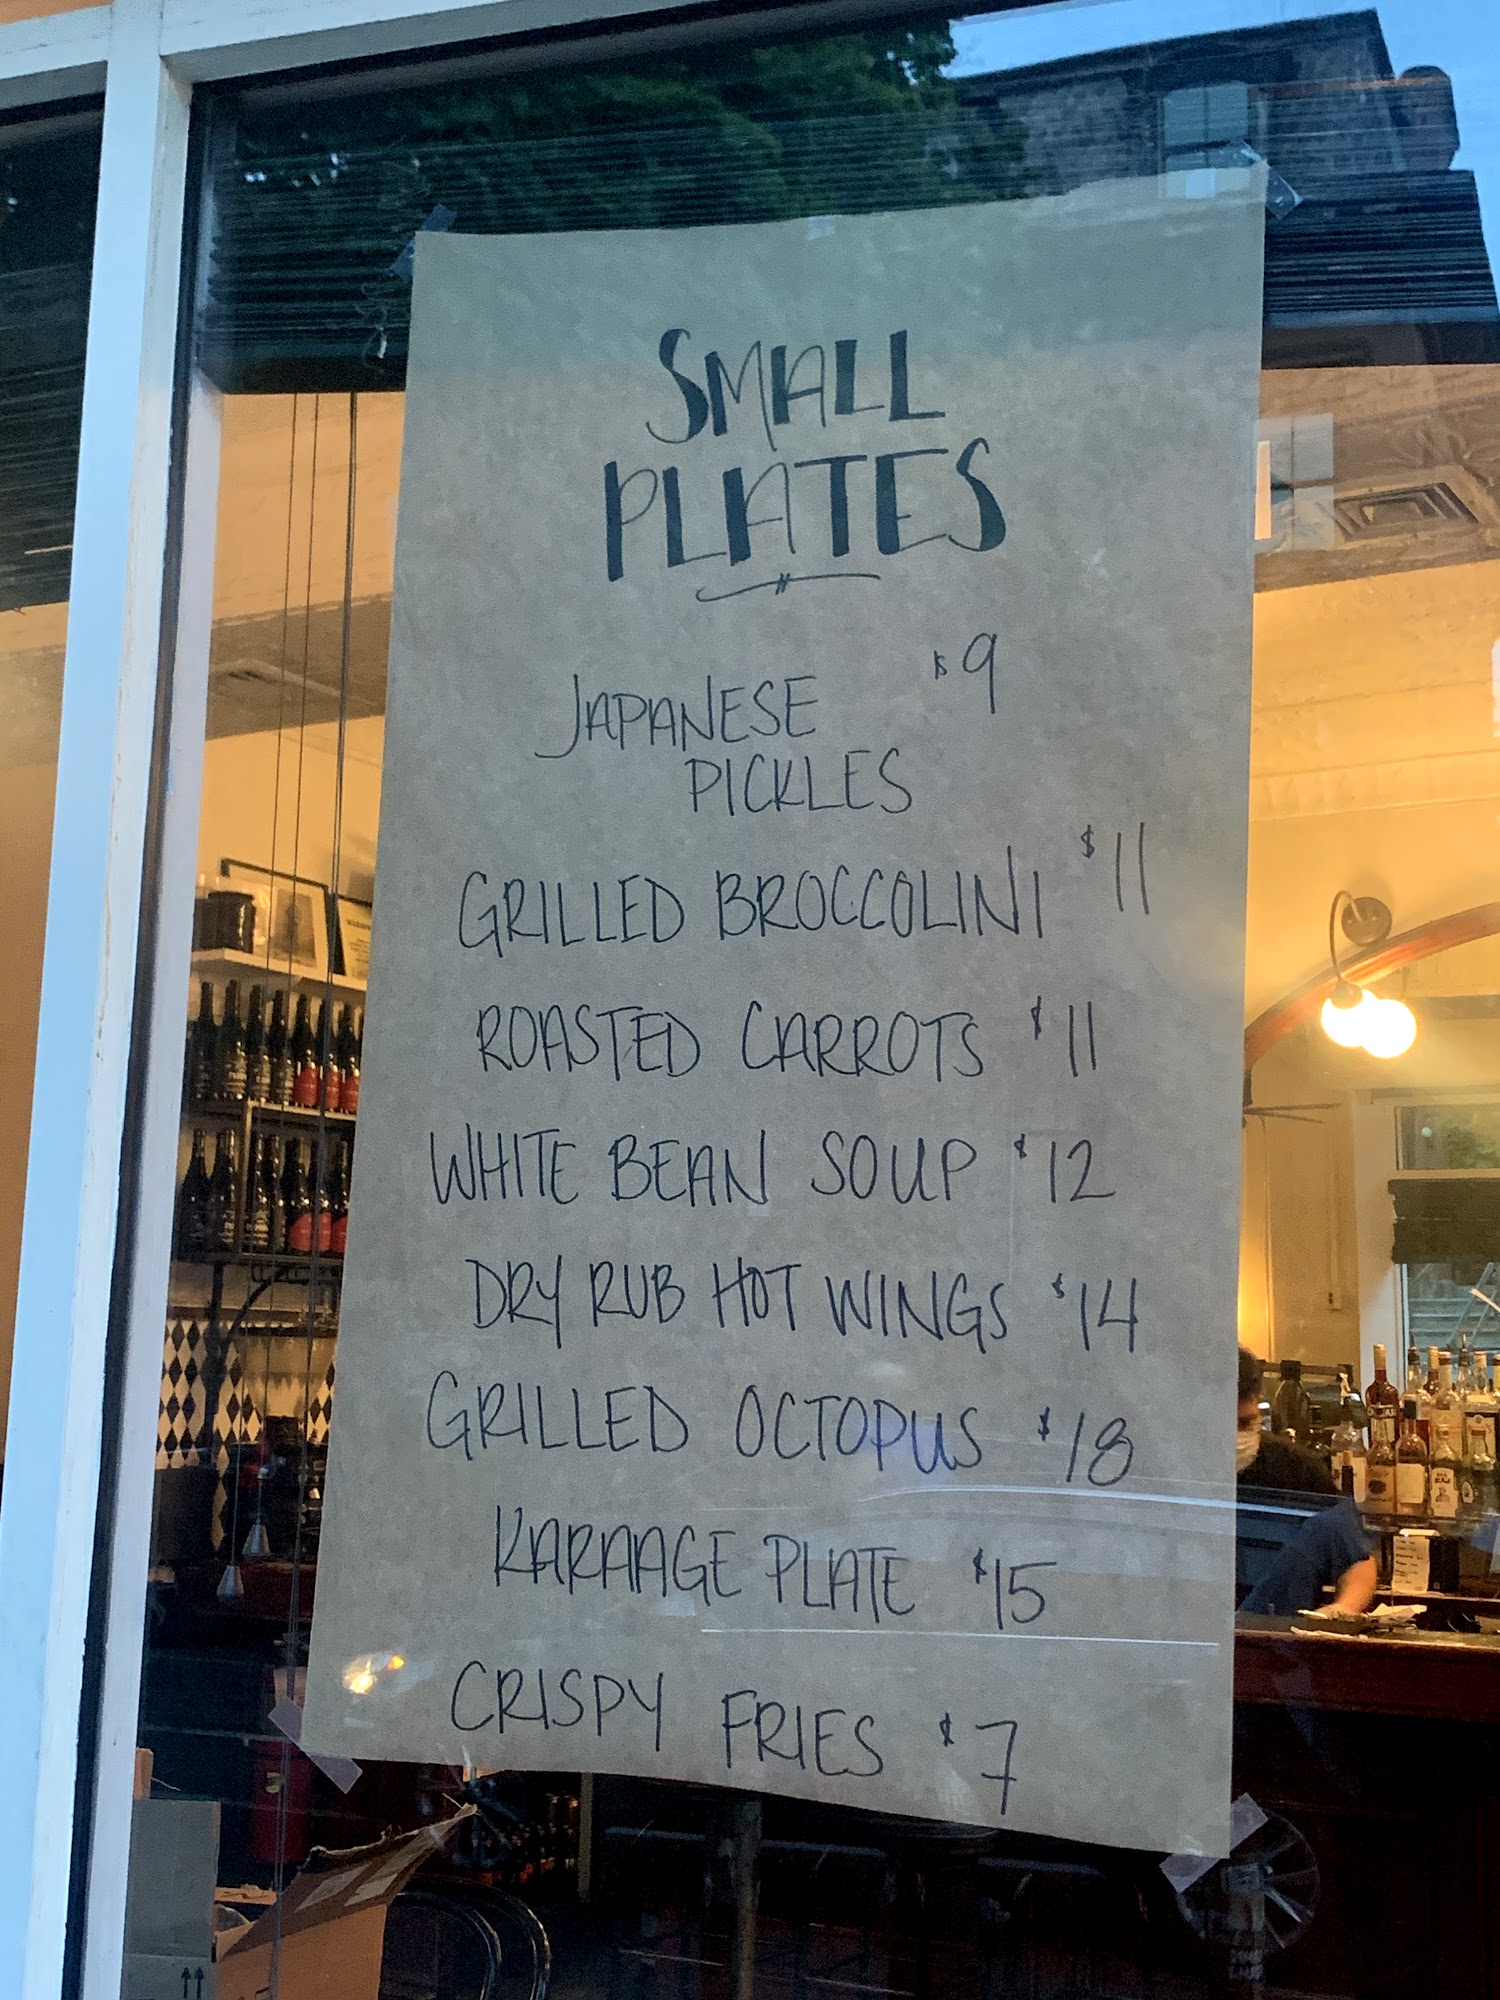 SMALL
PLATES
JAPANESE $9
PICKLES
GRILLED BROCCOLINI $11
ROASTED CARROTS $11
WHITE BEAN SOUP $12
DRY RUB HOT WINGS $14
GRILLED OCTOPUS $18
KARAAGE PLATE $15
CRISPY FRIES $7